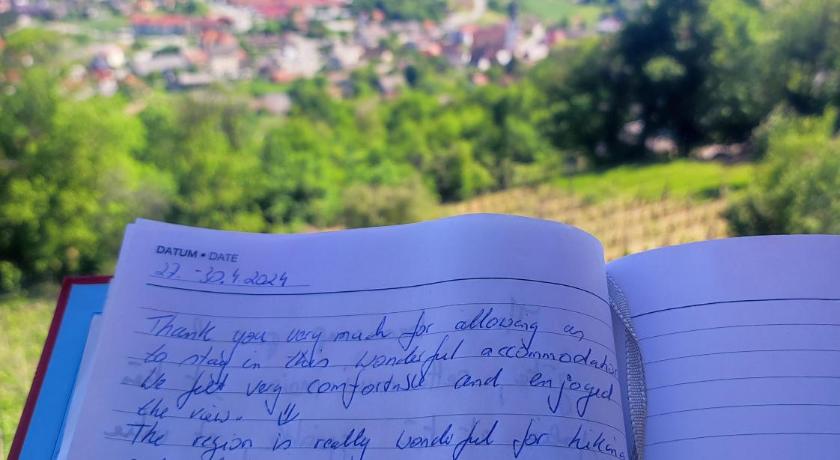 DATUM • DATE
27. -30.4.2024
Thank you very much for allowing us
to stay in this wonderful accommodation
We feel very comfortable and enjoyed
the view.
The region is really wonderful for hiking